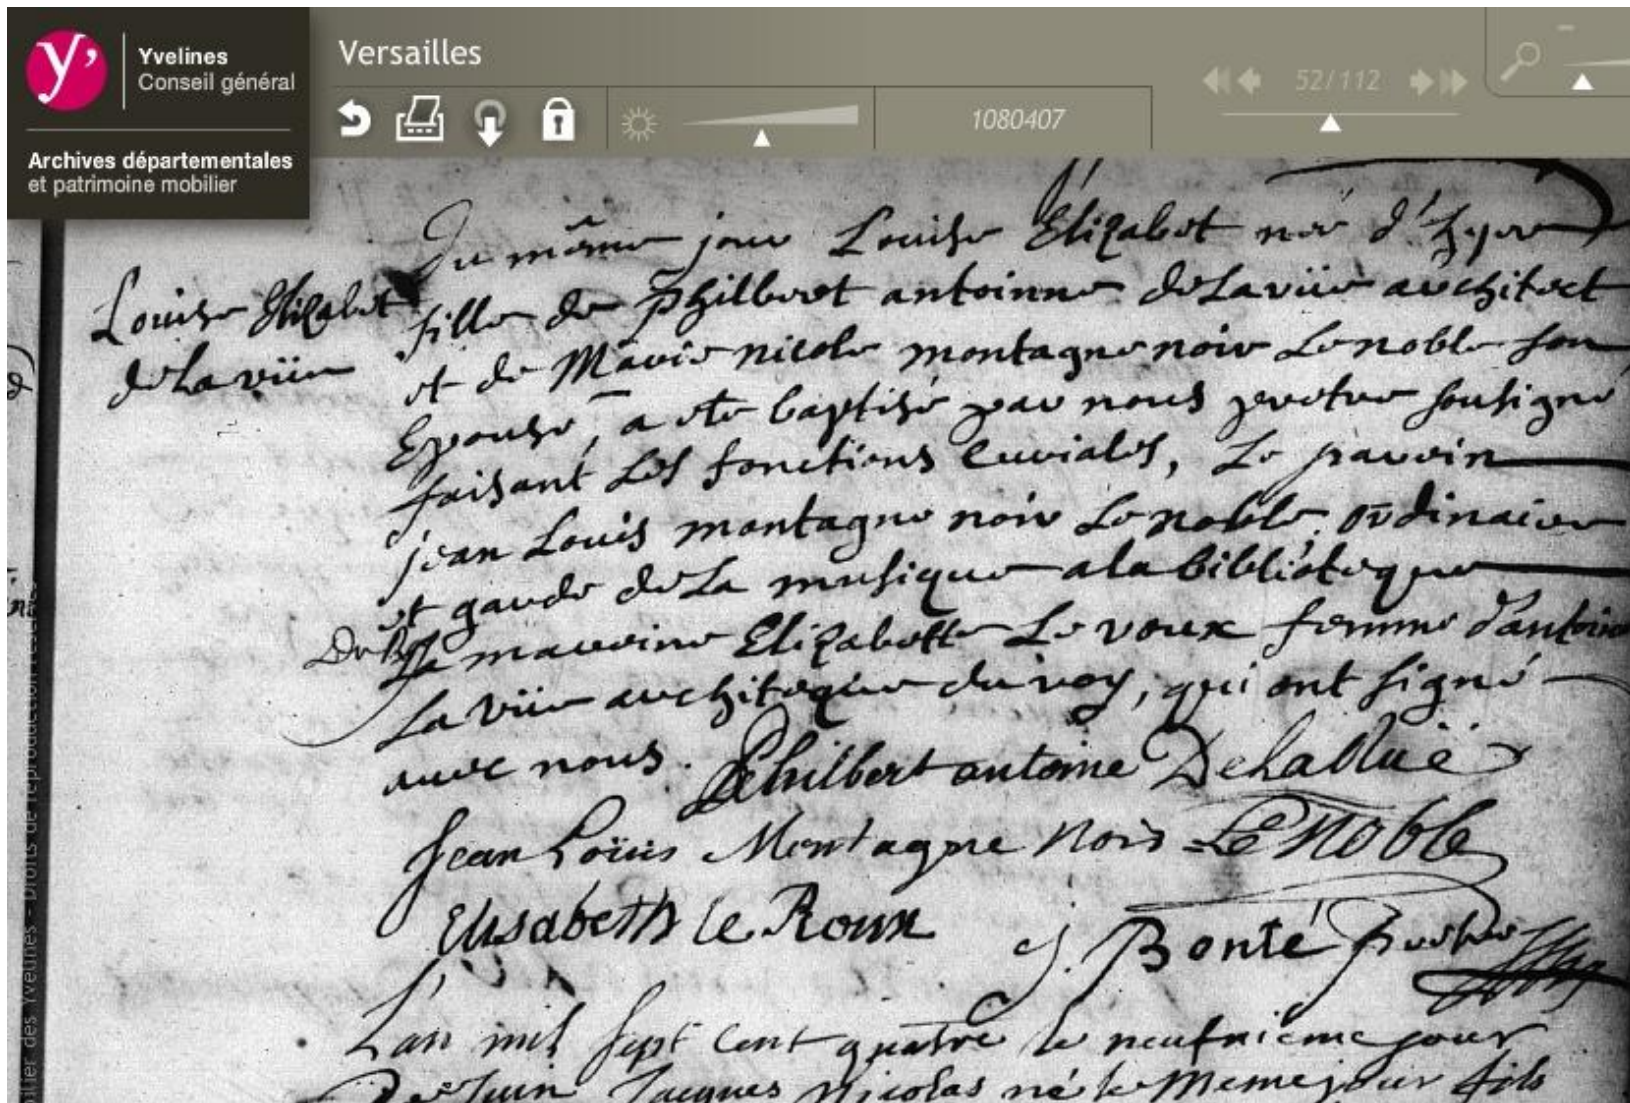 Yvelines
Conseil général
Archives départementales
et patrimoine mobilier
Versailles
52/112
1080407
Du même jour Louise Elizabet née d'hyer
Louise Elizabet
delaviie
fille de philbert antoinne delaviie architect
et de Marie nicole montagne noir Lenoble son
Epouse, a ete baptisé par nous pretre sousigné
faisant les fonctions curiales, Le parein
jean Louis montagne noir Lenoble ordinaire
et garde de La musique a la biblioteque
La mareine Elizabette Le roux femme d'antoine
La viie architeque du roy, qui ont signé
avec nous. Philbert antoine DeLaVuë
Jean Loüis Montagne Noir Le Noble
Elisabeth le Roux J. Bonté Prestre
L'an mil sept cent quatre le neufuieme jour
De Juin Jacques Nicolas né le Meme jour fils
Droits de reproduction réservés